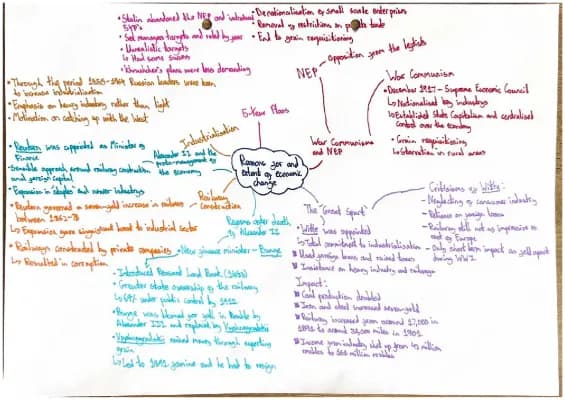 Reasons for and
extent of economic
change
5-Year Plans
• Stalin abandoned the NEP and introduced
5YPs
• Set managers targets and ruled by fear
• Unrealistic targets
↳ Had some success
• Khrushchev's plans were less demanding
NEP
opposition from the leftists
• Denationalisation of small scale enterprises
• Removal of restrictions on private trade
• End to grain requisitioning
War Communism
and NEP
War Communism
• December 1917 - Supreme Economic Council
↳ Nationalised key industrys
↳ Established State Capitalism and centralised
control over the economy
• Grain requisitioning
↳ Starvation in rural areas
The 'Great Spurt'
• Witte was appointed
↳ Total commitment to industrialisation
• Used foreign loans and raised taxes
• Insistence on heavy industry and railways
Criticisms of Witte:
• Neglecting of consumer industry
• Reliance on foreign loans
• Railway still not as impressive as
rest of Europe
• Only short term impact as fell apart
during WW1
Impact:
• Coal production doubled
• Iron and steel increased seven-fold
• Railway increased from around 17,000 in
1891 to around 32,000 miles in 1901
• Income from industry shot up from 42 million
roubles to 160 million roubles
Reforms after death
of Alexander II
• New finance minister - Bunge
- Introduced Peasant Land Bank (1883)
• Greater state ownership of the railway
↳ 69% under public control by 1911
• Bunge was blamed for fall in Rouble by
Alexander III and replaced by Vyshnegradskii
• Vyshnegradskii raised money through exporting
grain
↳ Led to 1891 famine and he had to resign
Railway
Construction
• Reutern governed a seven-fold increase in railways
between 1862-78
↳ Expansions gave significant boost to industrial sector
• Railways constructed by private companies
↳ Resulted in corruption
Alexander II and the
proto-management of
the economy
• Reutern was appointed as Minister of
Finance
• Sensible approach around railway construction
and foreign capital
• Expansion in staples and newer industrys
Industrialisation
• Through the period 1855-1964 Russian leaders were keen
to increase industrialisation
• Emphasis on heavy industry rather than light
• Motivation on catching up with the West